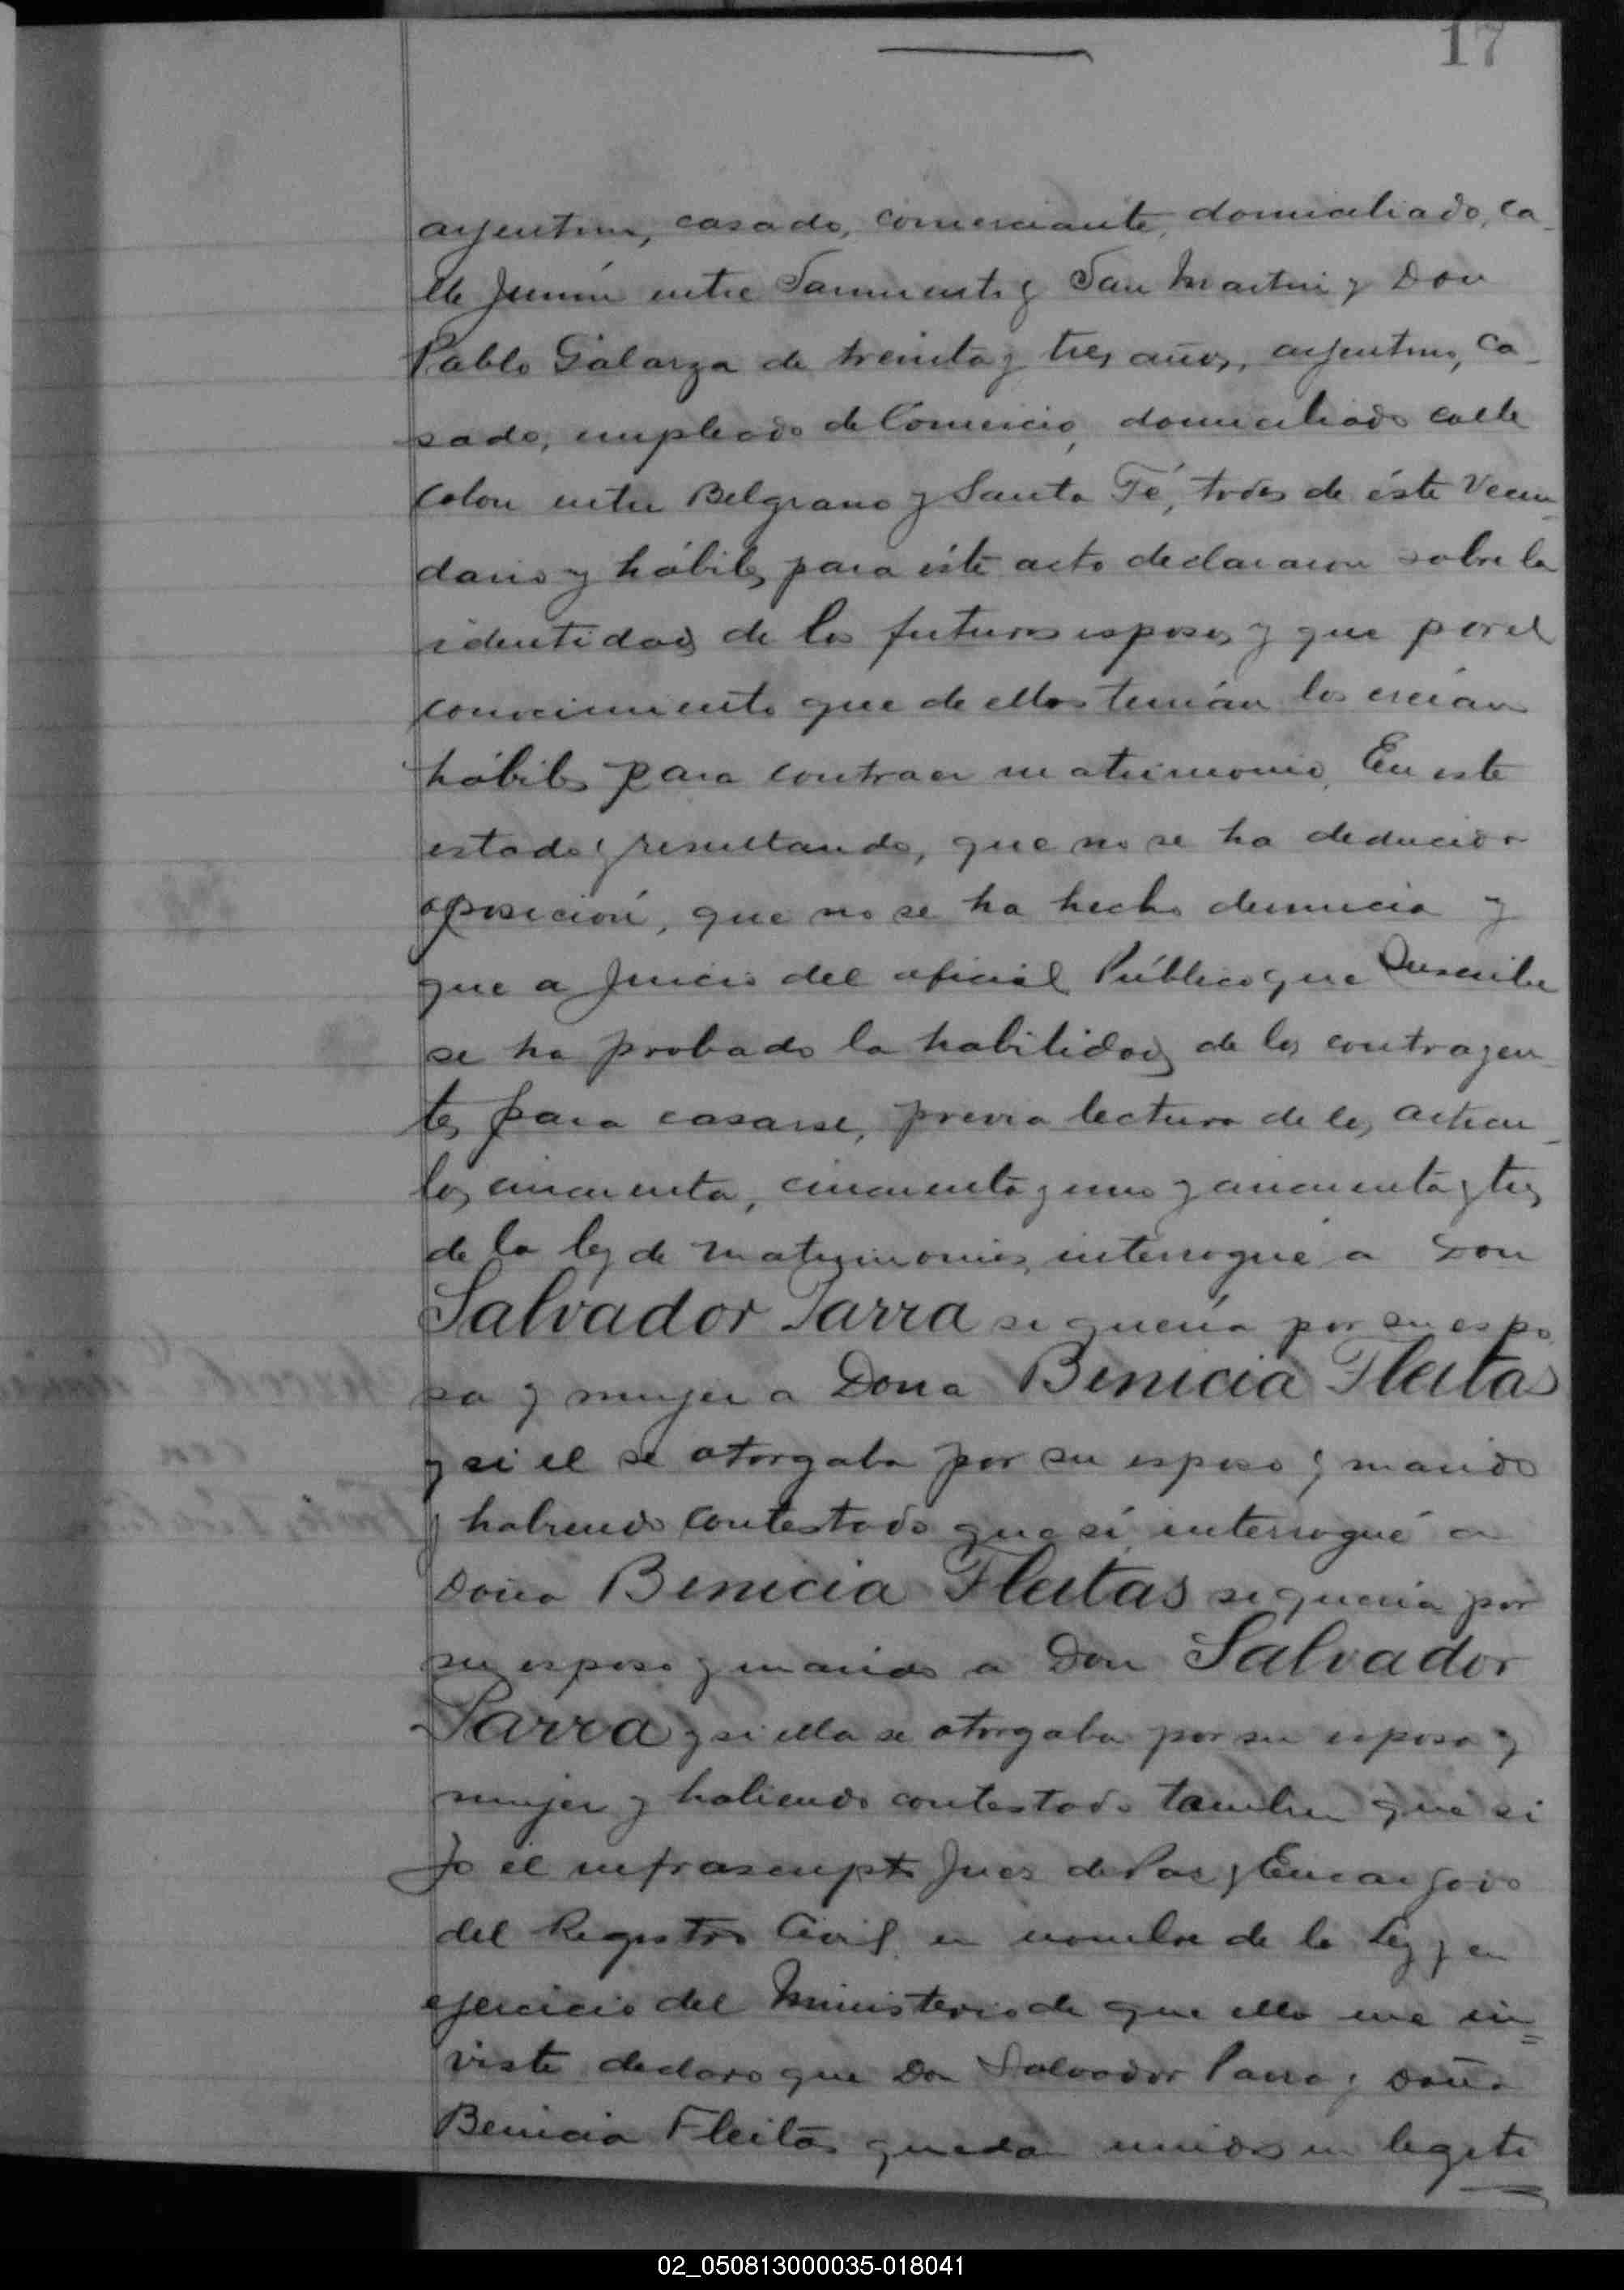 17
argentino, casado, comerciante, domiciliado, ca-
lle Junin entre Sarmiento y San Martin y Don
Pablo Galarza de treinta y tres años, argentino, ca-
sado, empleado de Comercio, domiciliado calle
Colon entre Belgrano y Santa Fé, todos de éste Vecin-
dario y hábiles para éste acto declararon sobre la
identidad de los futuros esposos y que por el
conocimiento que de ellos tenían los creían
hábiles para contraer matrimonio. En este
estado y resultando, que no se ha deducido
oposición, que no se ha hecho denuncia y
que a juicio del oficial Público que Suscribe
se ha probado la habilidad de los contrayen-
tes para casarse, previa lectura de los articu-
los cincuenta, cincuenta y uno y cincuenta y tres
de la ley de matrimonio, interrogué a Don
Salvador Parra si quería por su espo
sa y mujer a Dona Benicia Fleitas
y si el se otorgaba por su esposo y marido
y habiendo contestado que sí interrogué a
Doña Benicia Fleitas si quería por
su esposo y marido a Don Salvador
Parra y si ella se otorgaba por su esposa y
mujer y habiendo contestado tambien que si
Yo el infrascripto Juez de Paz y Encargado
del Registro Civil en nombre de la Ley y en
ejercicio del Ministerio de que ella me in=
viste declaro que Don Salvador Parra y Doña
Benicia Fleitas quedan unidos en legiti
02_050813000035-018041